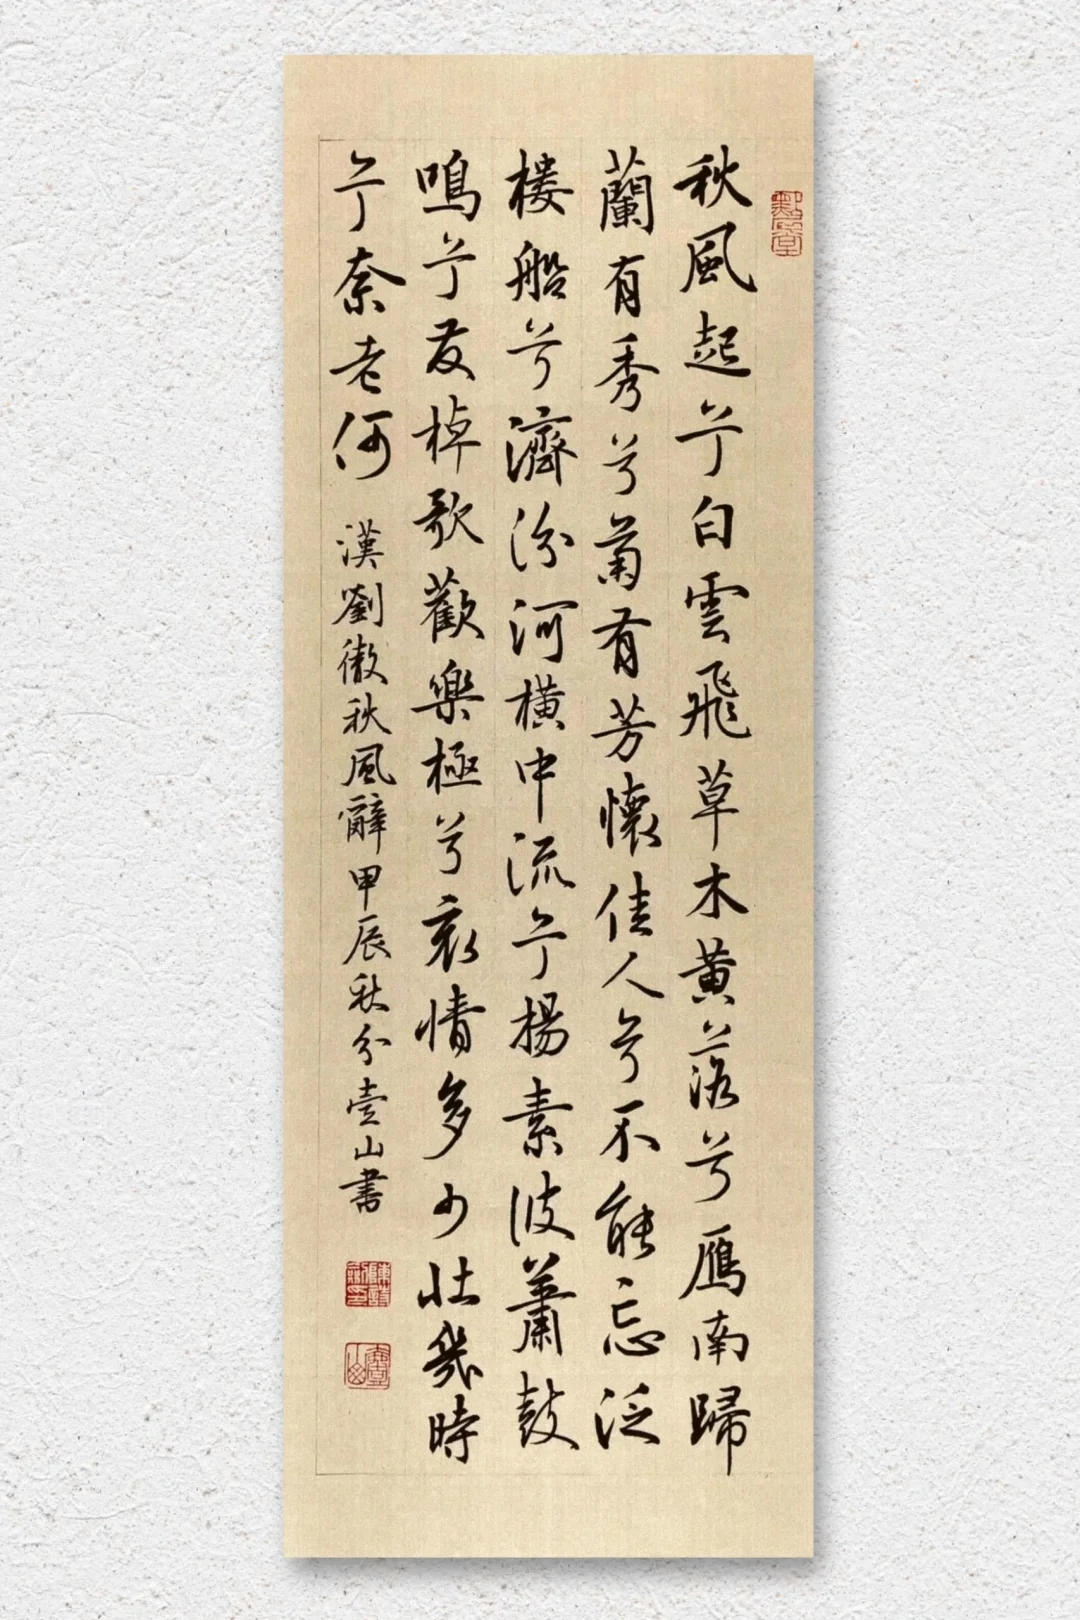 秋風起兮白雲飛草木黄落兮鴈南歸
蘭有秀兮菊有芳懷佳人兮不能忘泛
樓船兮濟汾河橫中流兮揚素波簫鼓
鳴兮發棹歌歡樂極兮哀情多少壯幾時
兮奈老何
漢劉徹秋風辭甲辰秋分壹山書